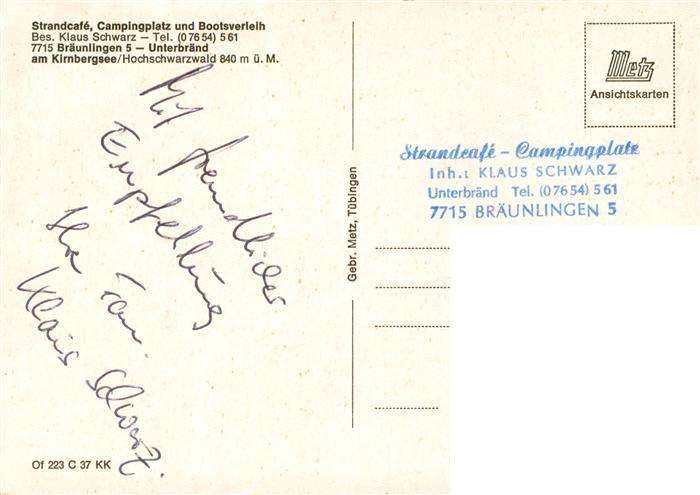 Strandcafé, Campingplatz und Bootsverleih
Bes. Klaus Schwarz – Tel. (0 76 54) 5 61
7715 Bräunlingen 5 – Unterbränd
am Kirnbergsee/Hochschwarzwald 840 m ü. M.
Mit freundlicher
Empfehlung
Ihr Fam.
Klaus Schwarz.
Of 223 C 37 KK
Gebr. Metz, Tübingen
Metz
Ansichtskarten
Strandcafé – Campingplatz
Inh.: KLAUS SCHWARZ
Unterbränd Tel. (0 76 54) 5 61
7715 BRÄUNLINGEN 5